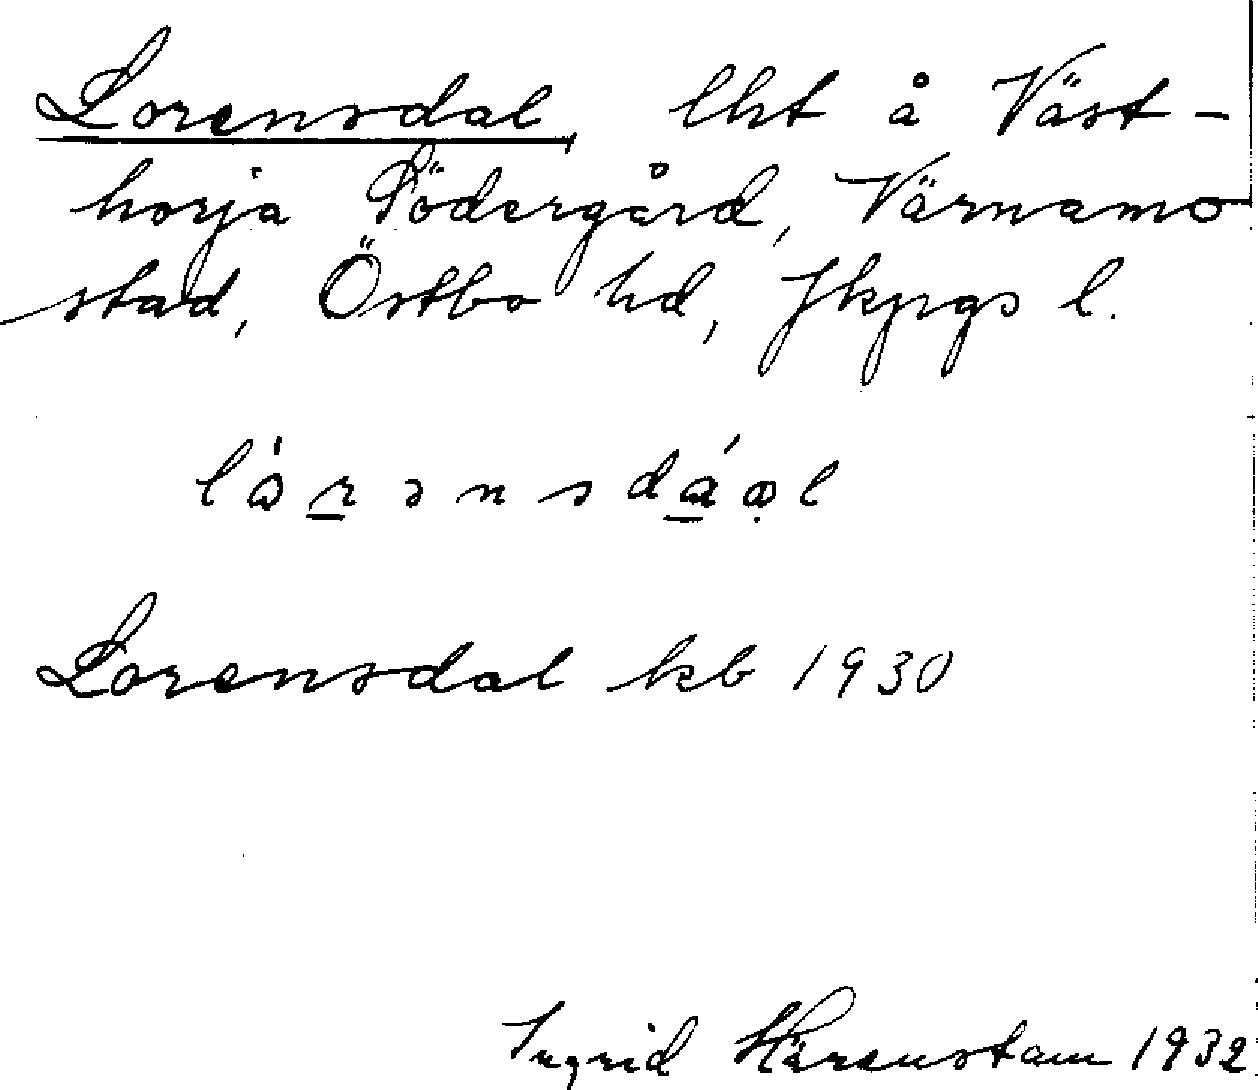 Lorensdal, lht å Väst-
horja Södergård, Värnamo
stad, Östbo hd, Jkpgs l.
Lorensdal kb 1930
Ingrid Härenstam 1932